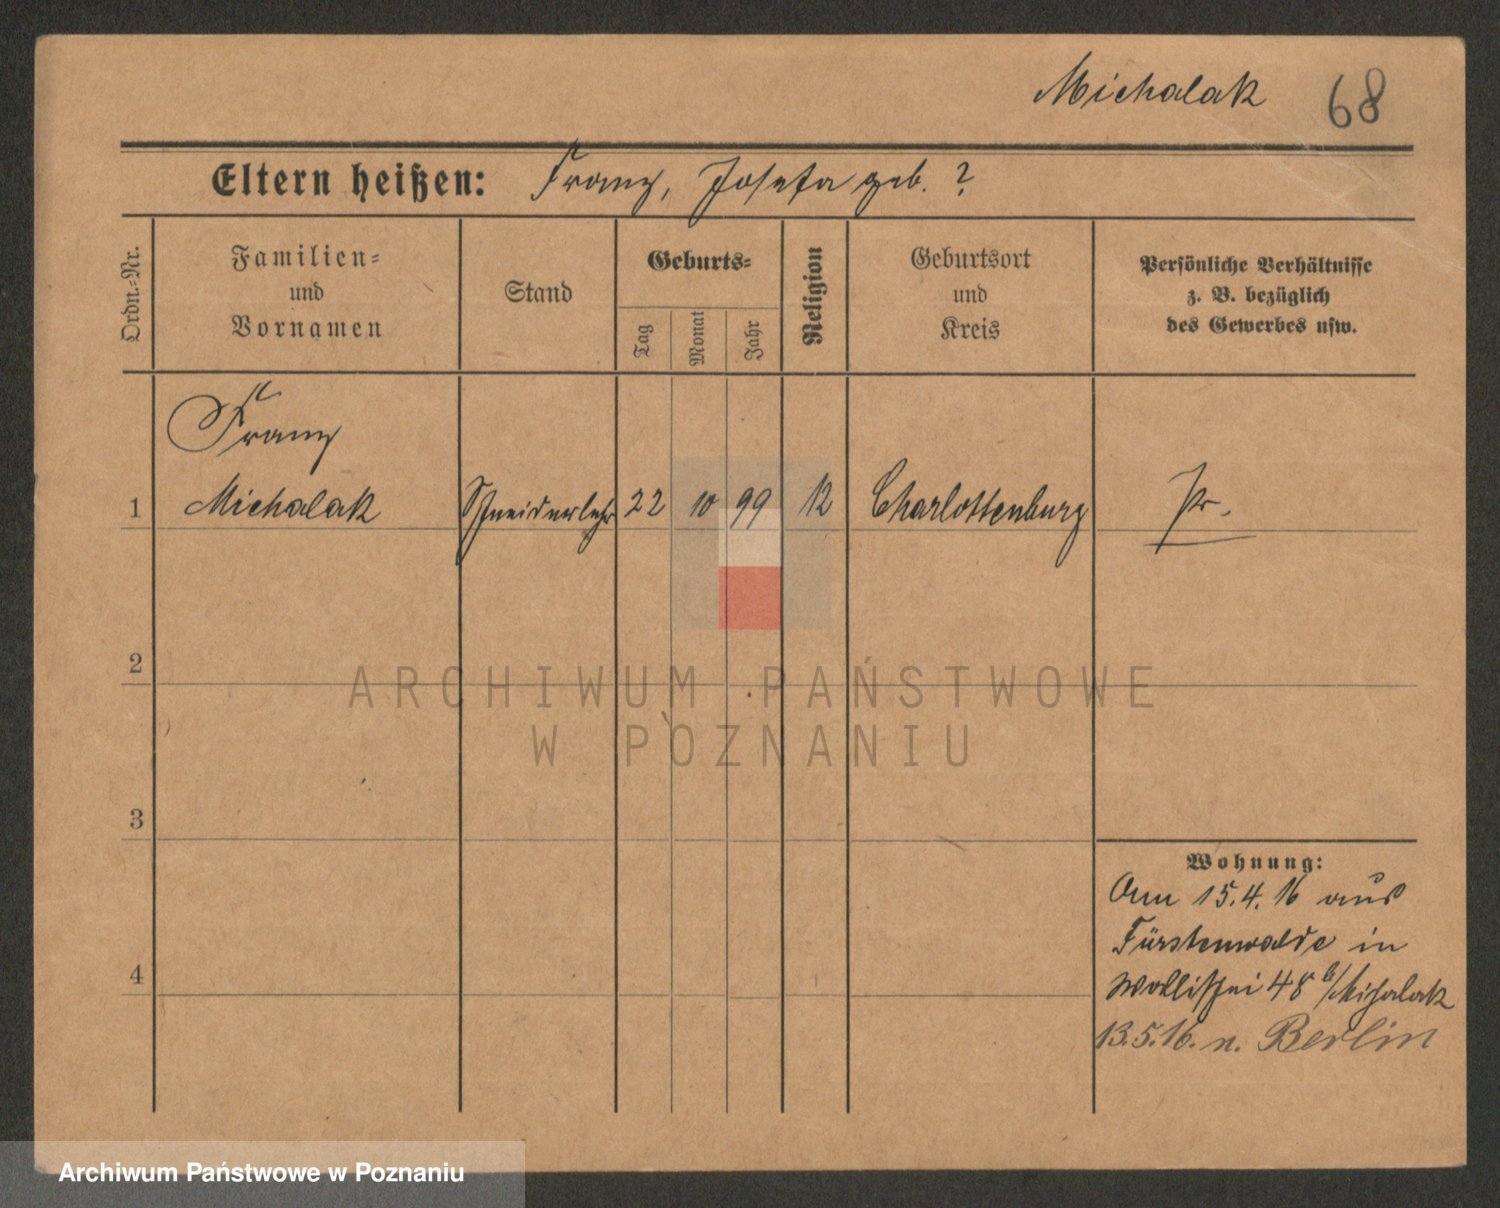 Michalak 68
Eltern heißen: Franz, Josefa geb. ?
Ordn.-Nr.
Familien-
und
Vornamen
Stand
Geburts-
Tag
Monat
Jahr
Religion
Geburtsort
und
Kreis
Persönliche Verhältnisse
z. B. bezüglich
des Gewerbes usw.
Franz
1 Michalak Schneiderlehr 22 10 99 Charlottenburg Pr.
2
ARCHIWUM PAŃSTWOWE
W POZNANIU
3
Wohnung:
15.4.16 aus
Fürstenwalde in
4
48 b/Michalak
13.5.16. n. Berlin
Archiwum Państwowe w Poznaniu